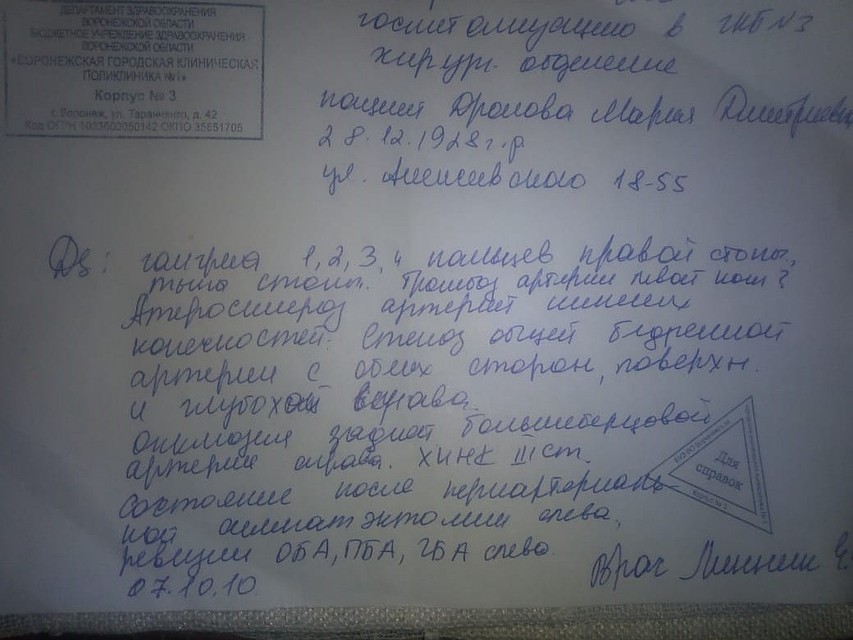 ДЕПАРТАМЕНТ ЗДРАВООХРАНЕНИЯ
ВОРОНЕЖСКОЙ ОБЛАСТИ
БЮДЖЕТНОЕ УЧРЕЖДЕНИЕ ЗДРАВООХРАНЕНИЯ
ВОРОНЕЖСКОЙ ОБЛАСТИ
«ВОРОНЕЖСКАЯ ГОРОДСКАЯ КЛИНИЧЕСКАЯ
ПОЛИКЛИНИКА №1»
Корпус № 3
г. Воронеж, ул. Таранченко, д. 42
Код ОГРН ОКПО
госпитализацию в ГКБ №3
хирург. отделение
пациент Дролова Мария
28.12.1928 г.р
ул. 18-55
Ds: гангрена 1, 2, 3, 4 пальцев правой стопы,
тыла стопы. Тромбоз артерии левой ноги?
Атеросклероз артерий нижних
конечностей. Стеноз общей бедренной
артерии с обеих сторон, поверхн.
и глубокой справа.
окклюзия задней большеберцовой
артерии справа. ХИНК III ст.
Состояние после периартериаль-
ной симпатэктомии слева,
ревизии ОБА, ПБА, ГБА слева.
07.10.10
Врач
Для
справок